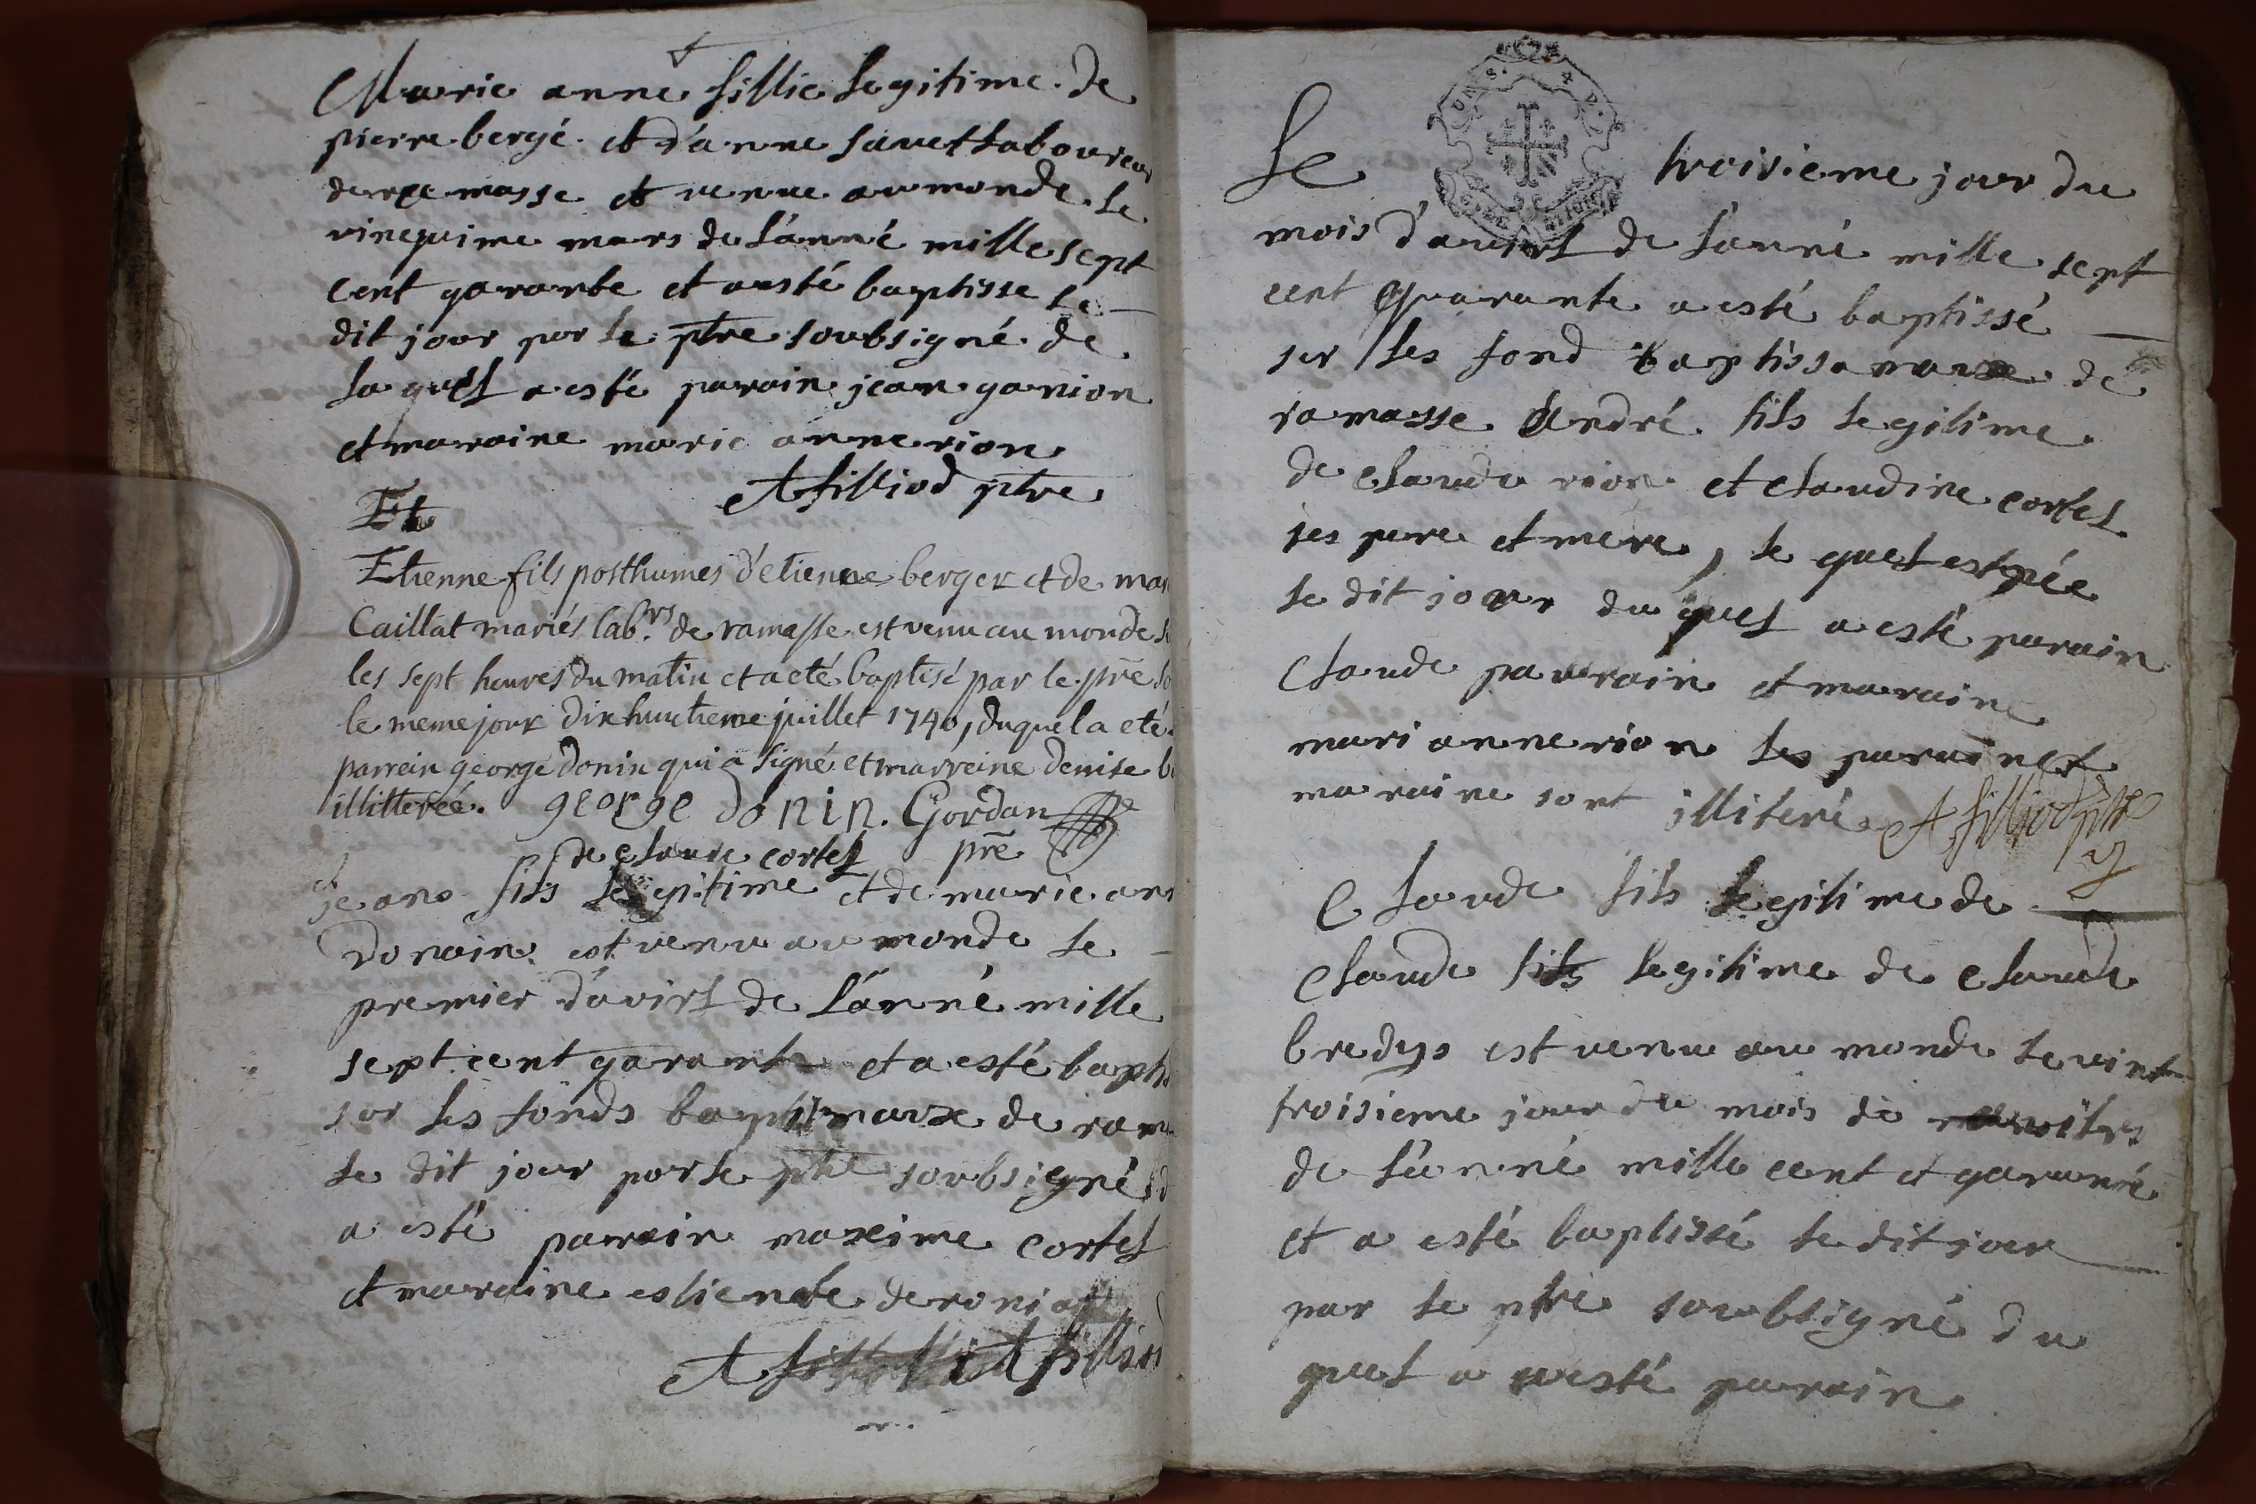 Marie anne fillie legitime de
pierre bergé et d'anne savet laboureur
de ramasse et venue au monde le
vinequime mars de l'anné mille sept
cent garante et a esté baptisse le
dit jour por le ptre soubsigné de
la quel a esté parain jean ganion
et maraine marie anne rion
A filliod ptre
Et
Etienne fils posthumes d'etienne berger et de
Caillat mariés lab.rs de ramasse est venu au monde
les sept heures du matin et a eté baptisé par le pre
le meme jour dixhuictieme juillet 1740, duquel a eté
parrein george donin qui a signé et marreine denise
illitterée. george donin. Gordan
pre
de claude cortel
jeans fils legitime et de marie
Donain est venu au monde le
premier d'avirl de l'anné mille
sept cent garante et a esté
sor les fonds baptimaux de
le dit jour por le ptre soubsigné
a esté parrain maxime cortel
et maraine estienete
A filliod
Le troisieme jour du
mois d'avirl de l'anné mille sept
cent quarante a esté baptissé
ser les fond baptissamaux de
ramasse André fils legitime
de claude rion et claudine cortel
ses pere et mere, le quel est née
le dit jour du quel a esté parain
Claude pavrain et maraine
mari anne rion les parain et
maraine sont illiteré A filliod ptre
Claude fils legitime de
Claude fils legitime de claude
bredys est venu au monde le vint
troisieme jour du mois de
de l'anné mille cent et garante
et a esté baptissé le dit jour
par le ptre soubsigné du
quel a esté parain